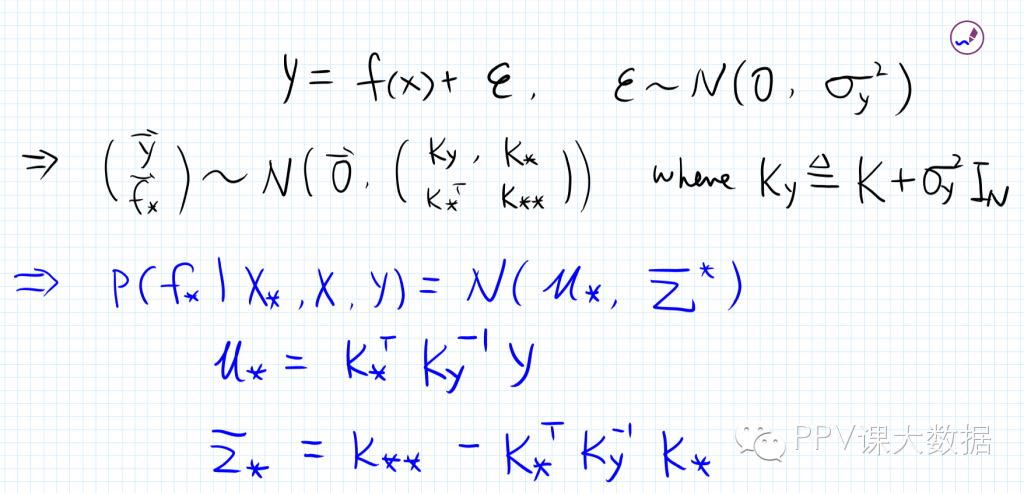 y = f(x) + ε, ε ~ N(0, σ_y^2)
⇒ (y⃗ f⃗_*) ~ N(0⃗, (K_y, K_* K_*^T K_**)) where K_y ≜ K + σ_y^2 I_N
⇒ P(f_* | X_*, X, y) = N(μ_*, Σ^*)
μ_* = K_*^T K_y^{-1} y
Σ_* = K_** - K_*^T K_y^{-1} K_*
PPV课大数据